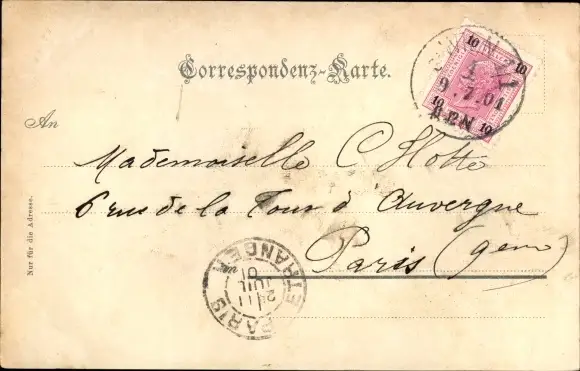 Correspondenz-Karte.
10 10
9.7.01
10 10
An
Mademoiselle C Hotte
6 rue de la Tour d'Auvergne
Paris (9em)
Nur für die Adresse.
PARIS ETRANGER
24 11
JUIL
01